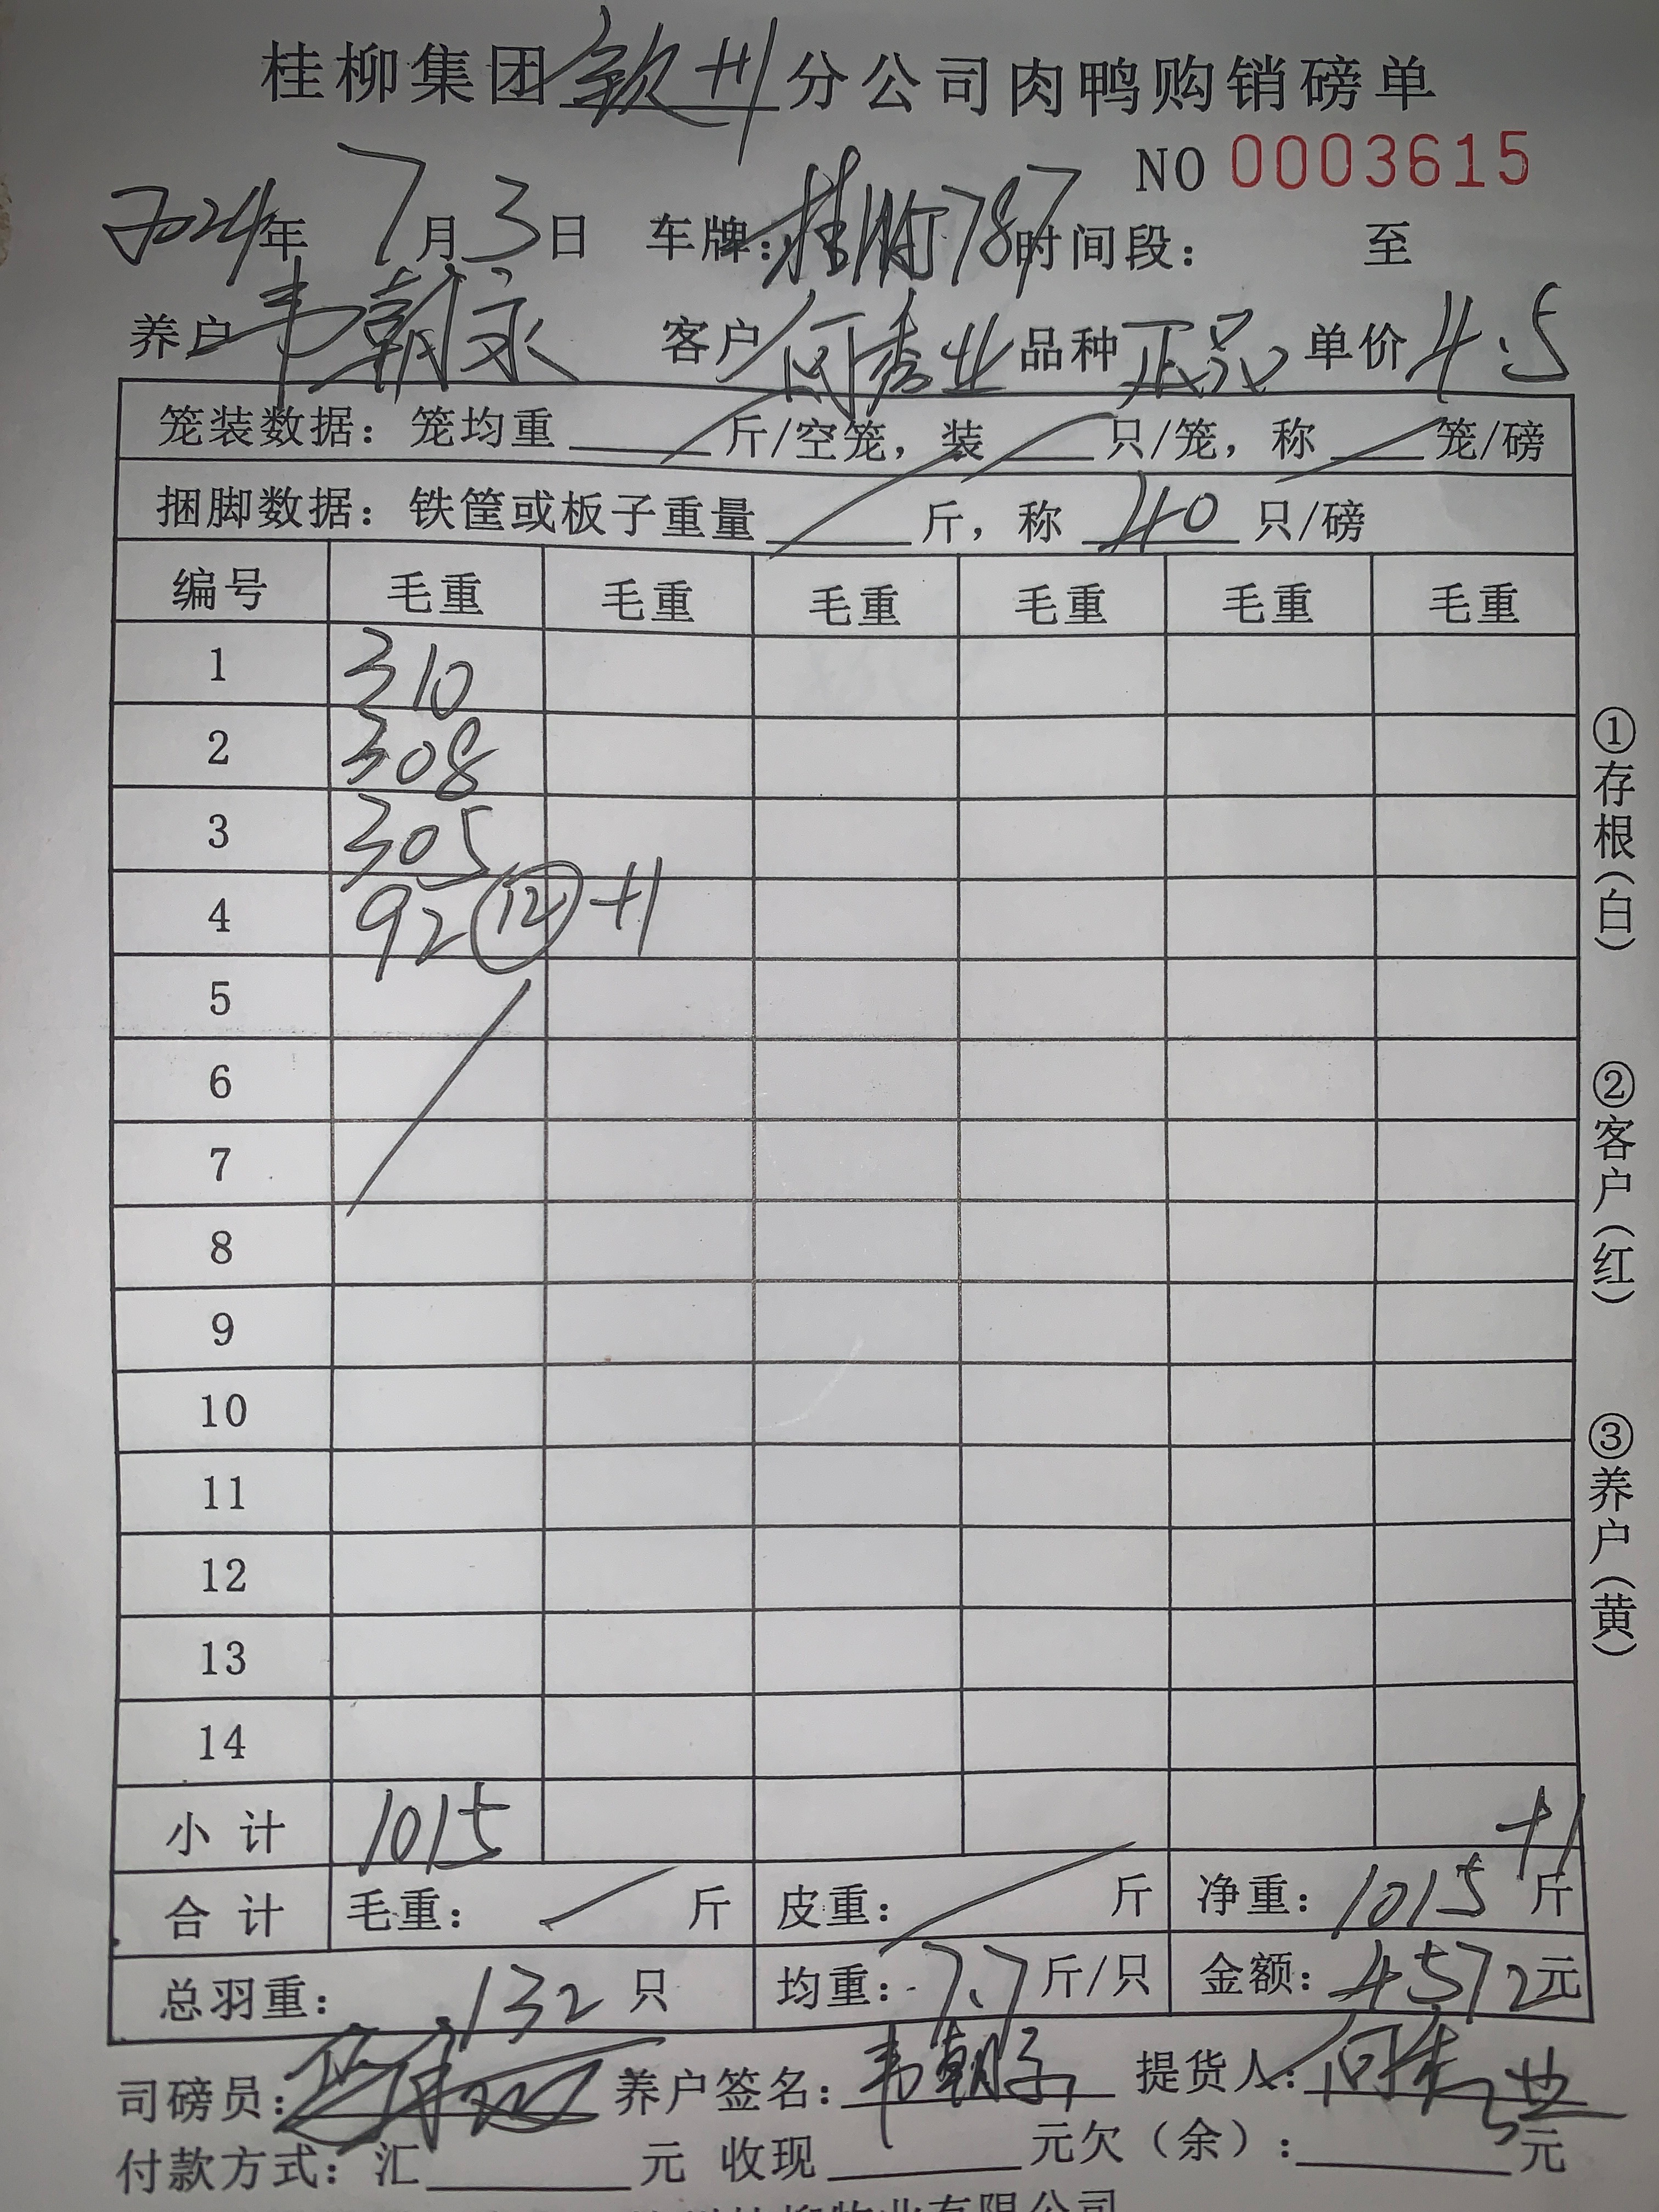 桂柳集团钦州分公司肉鸭购销磅单
NO 0003615
2024年7月3日 车牌:桂 787 时间段: 至
养户韦朝永 客户何秀业 品种正品 单价4.5
笼装数据:笼均重 斤/空笼,装 只/笼,称 笼/磅
捆脚数据:铁筐或板子重量 斤,称 40 只/磅
编号 毛重 毛重 毛重 毛重 毛重 毛重
1 310
2 308
3 305
4 92 ⑫ +1
5
6
7
8
9
10
11
12
13
14
小计 1015 +1
合计 毛重: 斤 皮重: 斤 净重:1015斤
总羽重:132只 均重:7.7斤/只 金额:4572元
司磅员: 养户签名:韦朝 提货人:何秀业
付款方式:汇 元 收现 元欠(余): 元
①存根(白)
②客户(红)
③养户(黄)